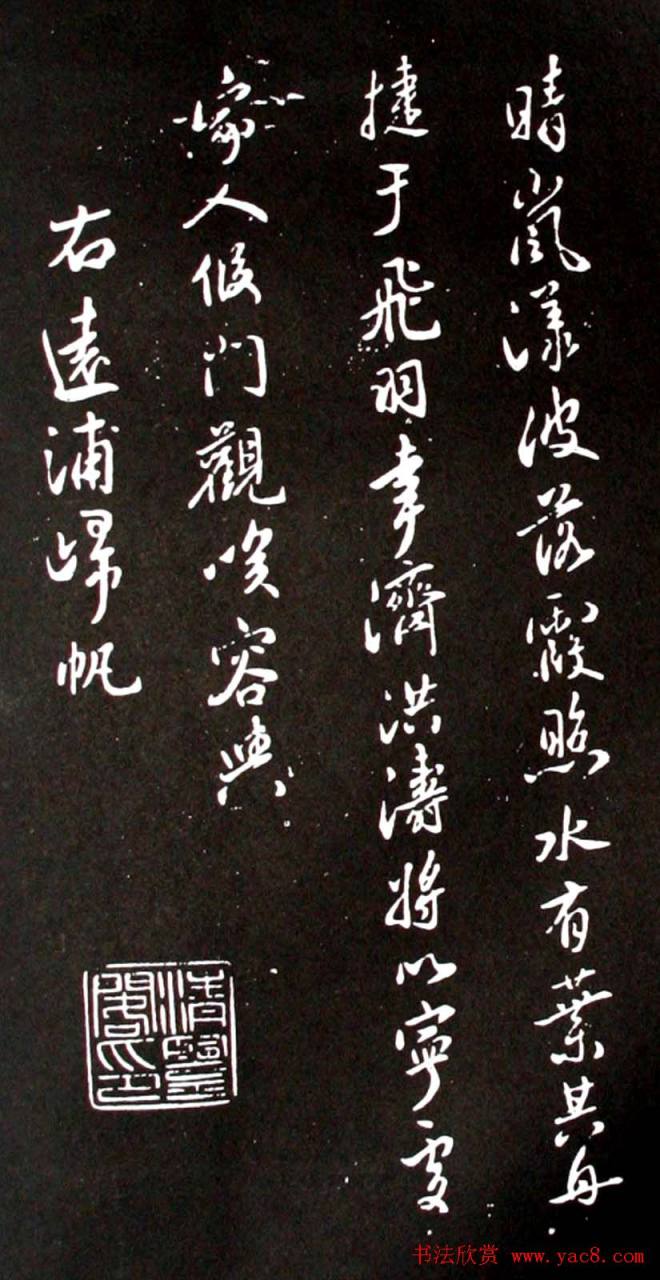 晴嵐漾波落霞照水有葉其舟
捷于飛羽幸濟洪濤將以寧處
家人候門觀笑容與
右遠浦歸帆
书法欣赏 www.yac8.com